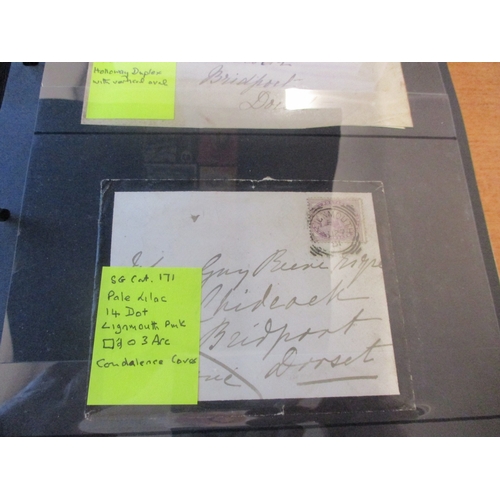 Holloway Duplex
with vertical oval
Bridport
Do
SG Cat. 171
Pale Lilac
14 Dot
Lignmouth Pmk
3 Arc
Condalence Cover
Guy
Chidcock
Bridport
Dorset